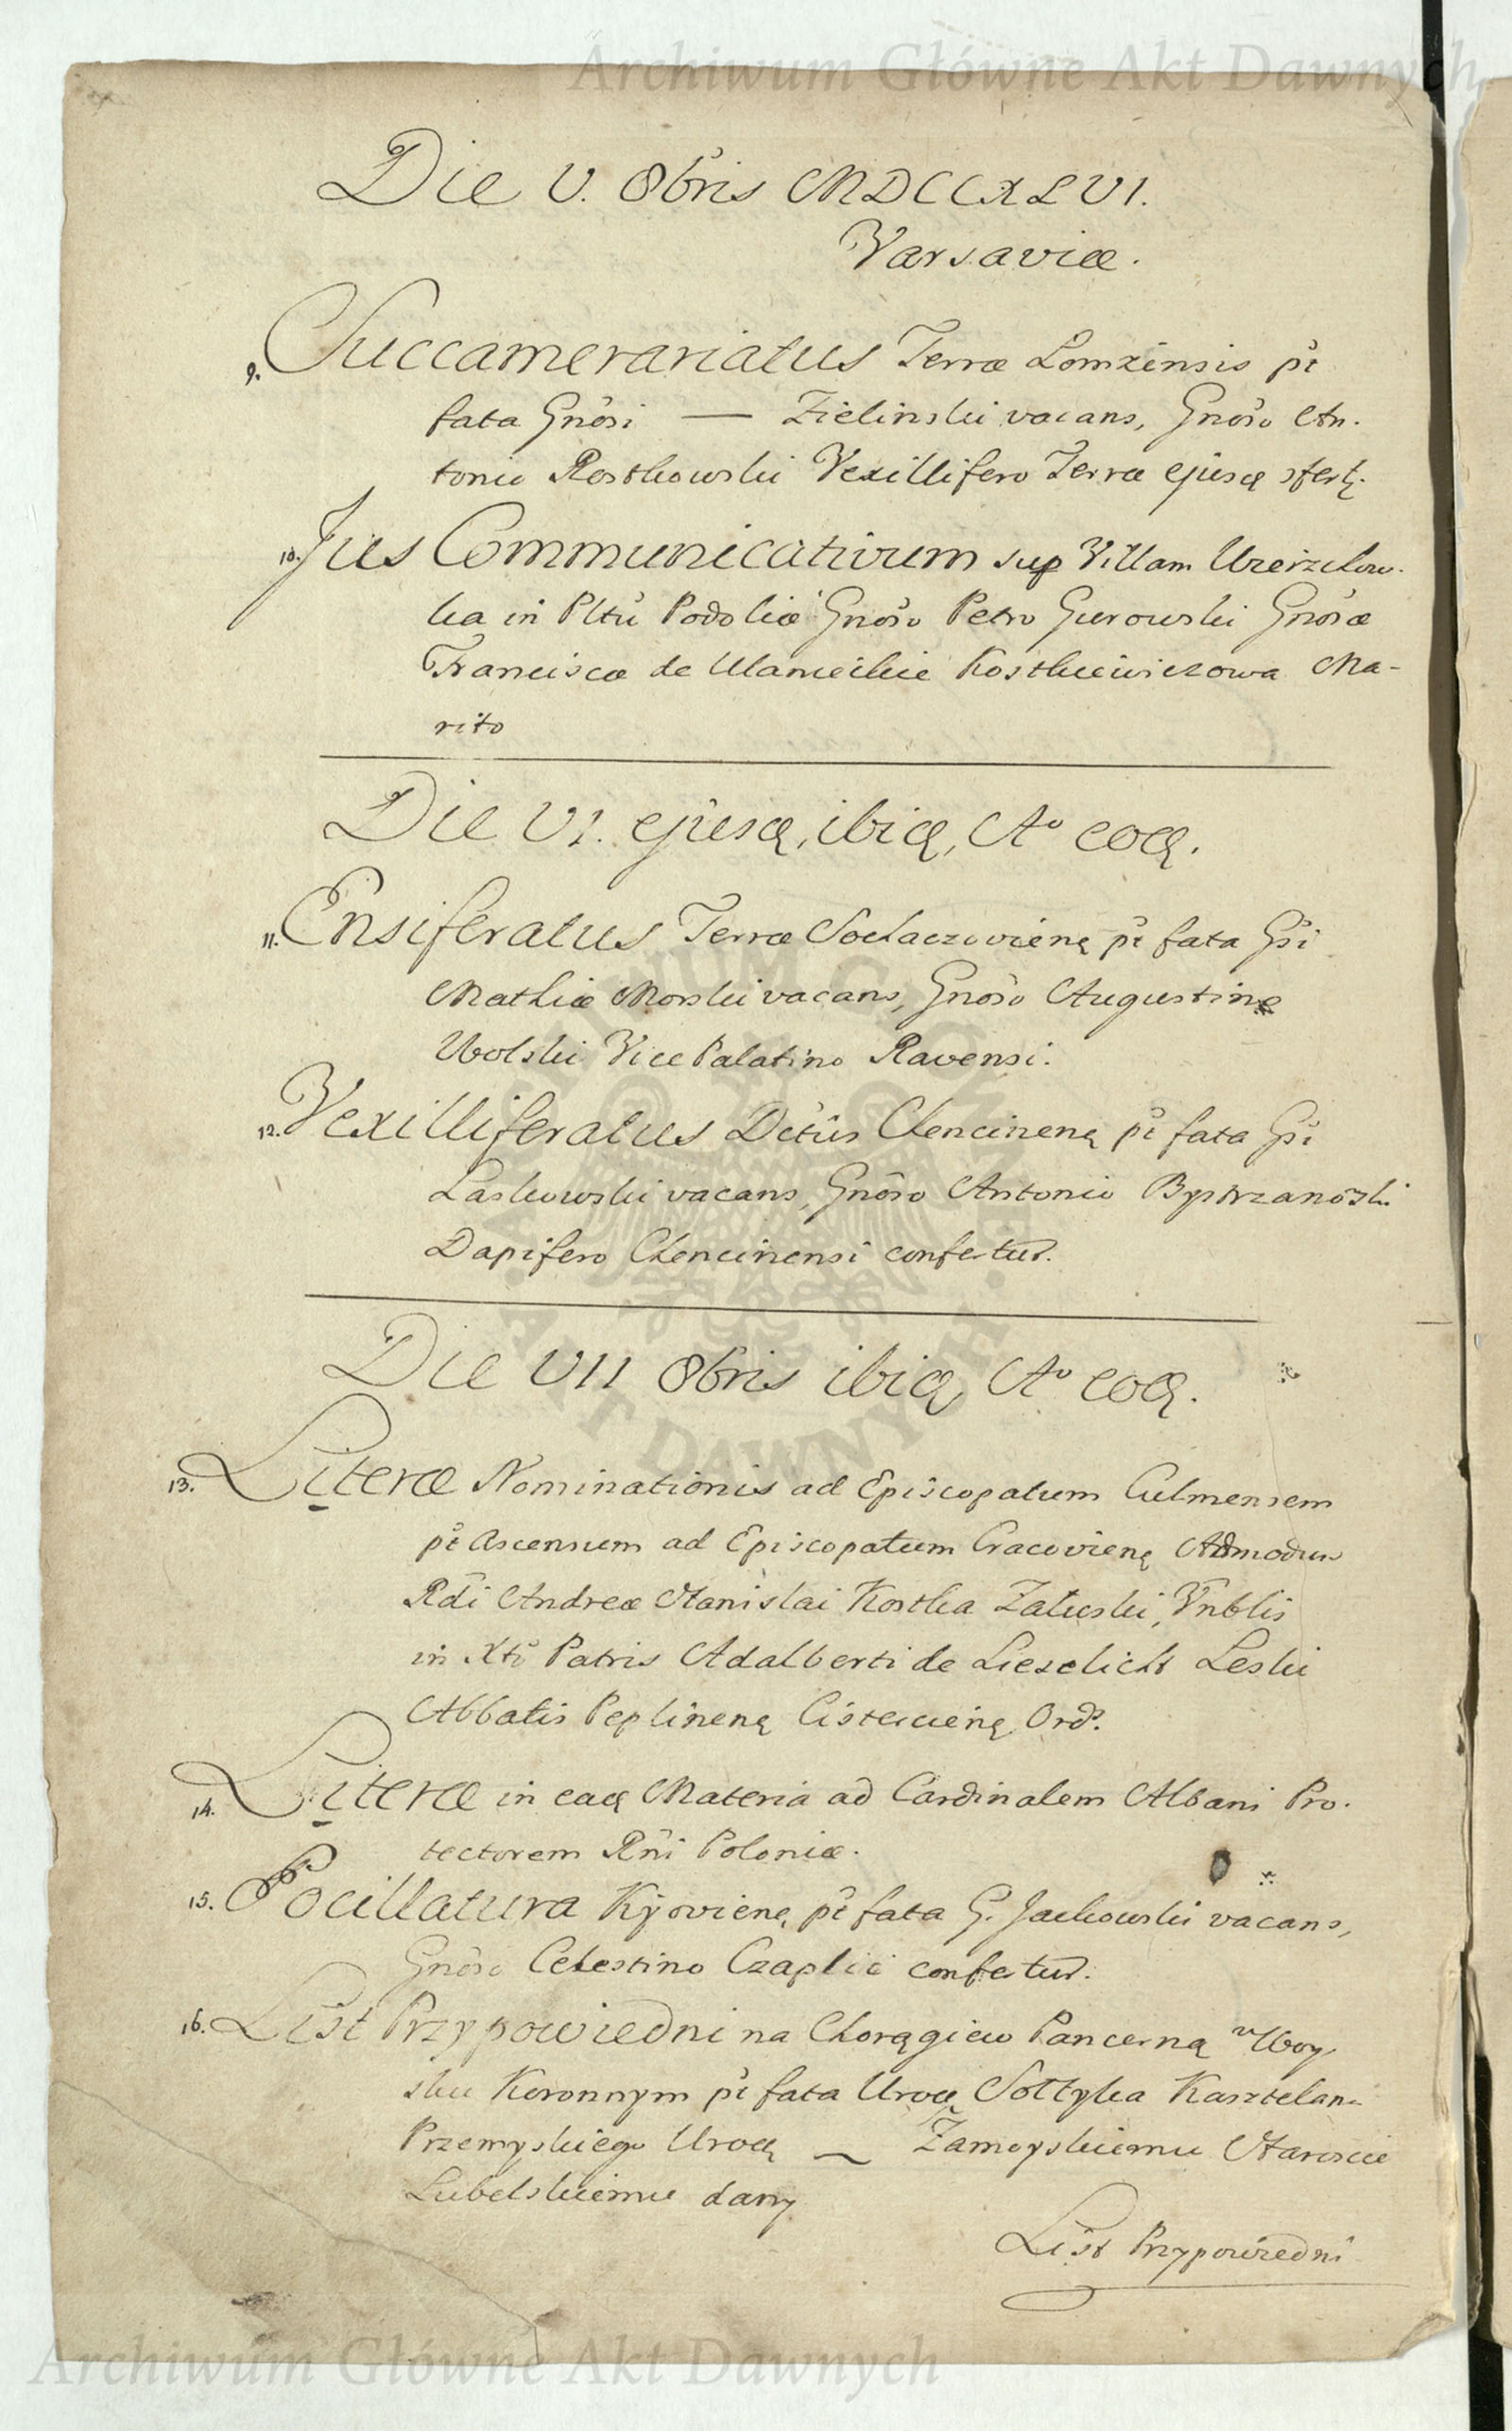 Archiwum Główne Akt Dawnych
Die V. 8bris MDCCXLVI.
Varsaviæ.
9. Succamerariatus Terræ Lomzensis pt
fata Gnosi — Zielinski vacans, Gnoso An-
tonio Rostkowski Vexillifero Terræ ejusą
10. Jus Communicativum sup Villam
ka in Pltu Podoliæ Gnoso Petro Gurowski Gnosæ
Franciscæ de Kostkiewiczowa Ma-
rito
Die VI. ejusą, ibią, Ao eoą.
11. Ensiferatus Terræ Sochaczovienę pt fata Gsi
Mathiæ Morski vacans, Gnoso Augustino
Wolski Vice Palatino Ravensi.
12. Vexilliferatus Dctus Chencinenę pt fata Gsi
Laskowski vacans, Gnoso Antonio Bystrzanoski
Dapifero Chencinensi confertur.
Die VII 8bris ibią, Ao eoą.
13. Literæ Nominationis ad Episcopatum Culmensem
pt Ascensum ad Episcopatum Cracovienę Admodum
Rdi Andreæ Stanislai Kostka Zaluski, Vnblis
in Xto Patris Adalberti de Leski
Abbatis Peplinenę Cistercienę Ords.
14. Literæ in eaą Materia ad Cardinalem Albani Pro-
tectorem Rni Poloniæ.
15. Pocillatura Kijovienę pt fata G. Jackowski vacans,
Gnoso Celestino Czaplic confertur.
16. List Przypowiedni na Chorągiew Pancerną w Woy-
sku Koronnym pt fata Uroą Sołtyka Kasztelana
Przemyskiego Uroą — Zamoyskiemu Staroscie
Lubelskiemu dany
List Przypowiedni
ARCHIWUM GŁÓWNE
AKT DAWNYCH
Archiwum Główne Akt Dawnych